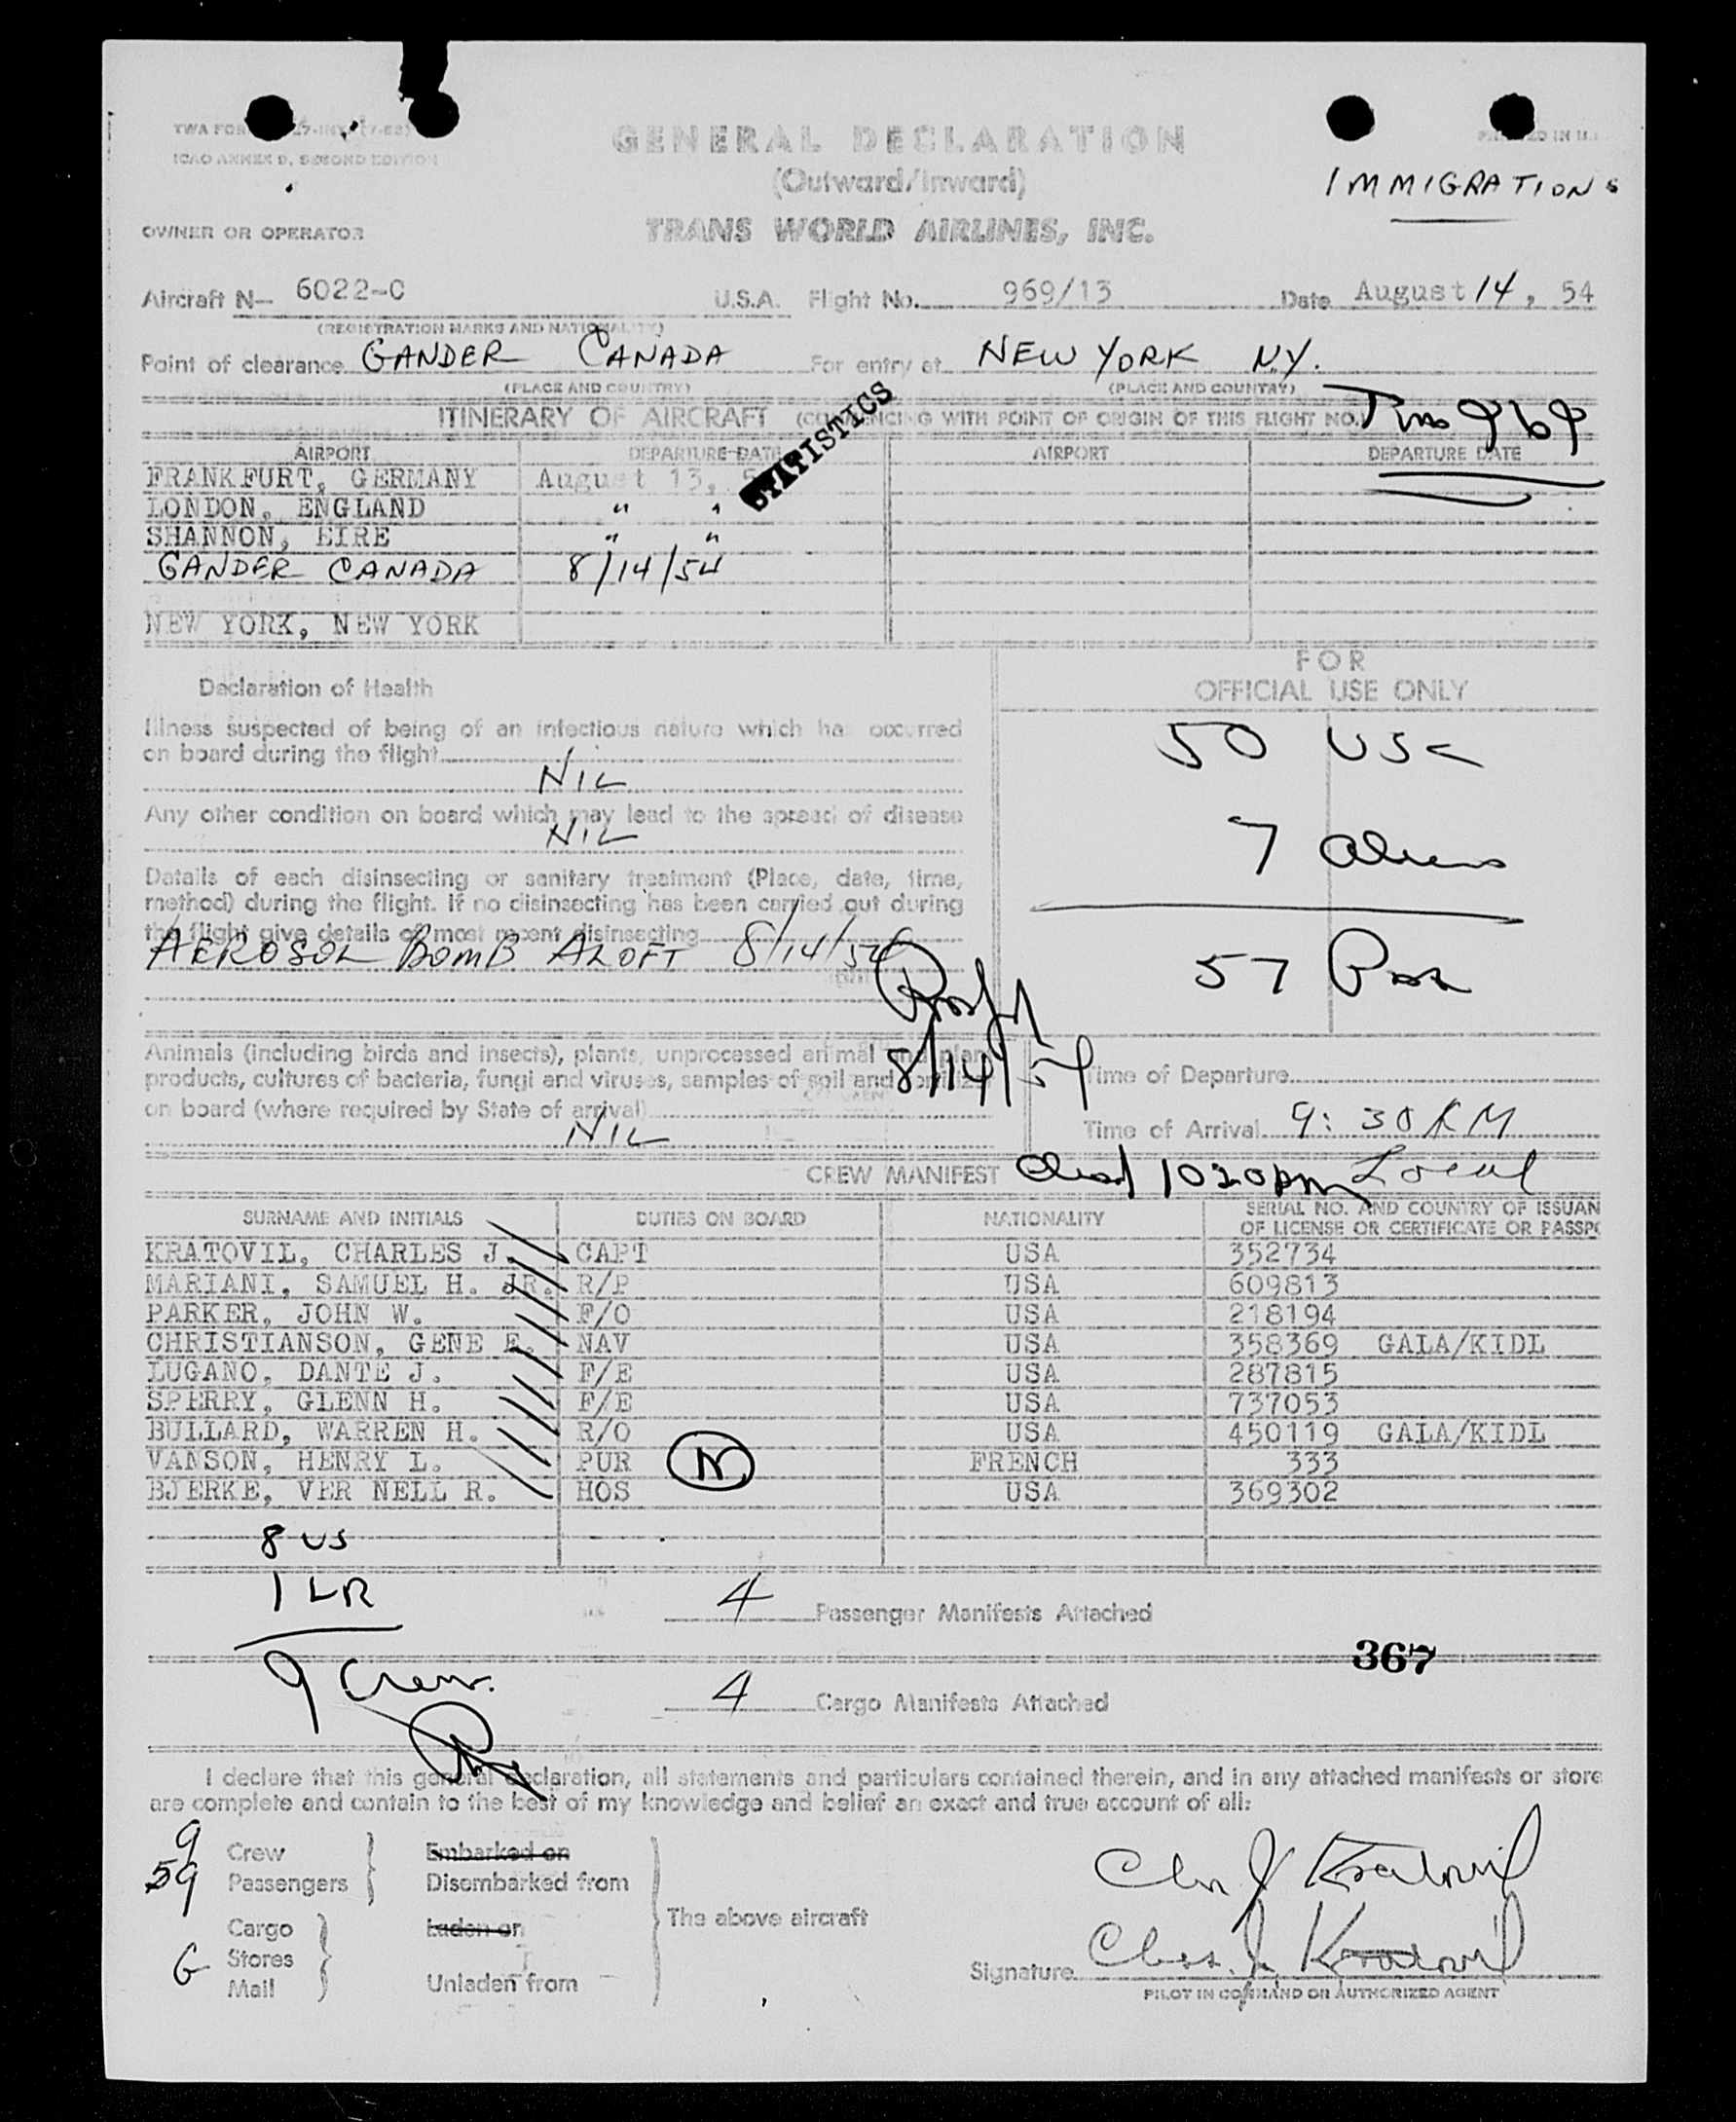 TWA FOR
ICAO ANNEX 9, SECOND EDITION
GENERAL DECLARATION
(Outward/Inward)
IMMIGRATION
OWNER OR OPERATOR
TRANS WORLD AIRLINES, INC.
Aircraft N— 6022-C U.S.A. Flight No. 969/13 Date August 14, 54
(REGISTRATION MARKS AND NATIONALITY)
Point of clearance GANDER CANADA For entry at NEW YORK N.Y.
(PLACE AND COUNTRY) (PLACE AND COUNTRY)
STATISTICS
ITINERARY OF AIRCRAFT WITH POINT OF ORIGIN OF THIS FLIGHT NO. 969
AIRPORT DEPARTURE DATE AIRPORT DEPARTURE DATE
FRANKFURT, GERMANY August 13,
LONDON, ENGLAND " "
SHANNON, EIRE " "
GANDER CANADA 8/14/54
NEW YORK, NEW YORK
FOR
OFFICIAL USE ONLY
50 USC
7 aliens
57 Pass
Declaration of Health
Illness suspected of being of an infectious nature which has occurred
on board during the flight
NIL
Any other condition on board which may lead to the spread of disease
NIL
Details of each disinsecting or sanitary treatment (Place, date, time,
method) during the flight. If no disinsecting has been carried out during
the flight give details of most recent disinsecting
AEROSOL BOMB ALOFT 8/14/54
8/14/54
Animals (including birds and insects), plants, unprocessed animal and plant
products, cultures of bacteria, fungi and viruses, samples of soil and
on board (where required by State of arrival)
NIL
Time of Departure
Time of Arrival 9:30 PM
Local
CREW MANIFEST 1020pm
SURNAME AND INITIALS DUTIES ON BOARD NATIONALITY SERIAL NO. AND COUNTRY OF ISSUAN
OF LICENSE OR CERTIFICATE OR PASSPO
KRATOVIL, CHARLES J. CAPT USA 352734
MARIANI, SAMUEL H. JR. R/P USA 609813
PARKER, JOHN W. F/O USA 218194
CHRISTIANSON, GENE E. NAV USA 358369 GALA/KIDL
LUGANO, DANTE J. F/E USA 287815
SPERRY, GLENN H. F/E USA 737053
BULLARD, WARREN H. R/O USA 450119 GALA/KIDL
VANSON, HENRY L. PUR FRENCH 333
BJERKE, VER NELL R. HOS USA 369302
8 US
1 LR
9 Crew
4 Passenger Manifests Attached
367
4 Cargo Manifests Attached
I declare that this general declaration, all statements and particulars contained therein, and in any attached manifests or store
are complete and contain to the best of my knowledge and belief an exact and true account of all:
9 Crew Embarked on
59 Passengers Disembarked from
The above aircraft
Cargo Laden on
G Stores
Mail Unladen from
Chas J Kratovil
Signature Chas. J. Kratovil
PILOT IN COMMAND OR AUTHORIZED AGENT